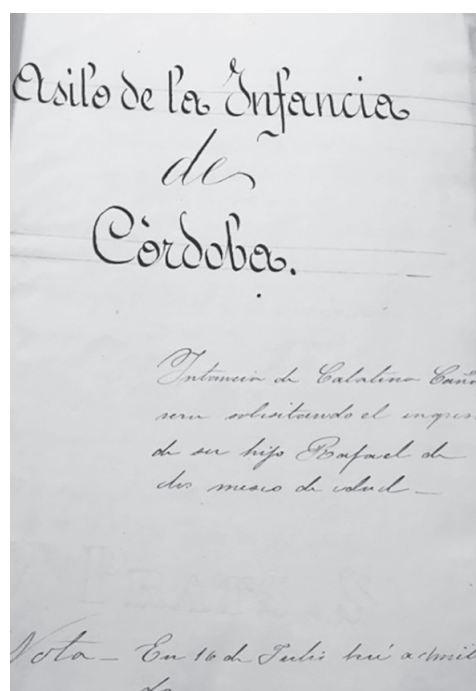 Asilo de la Infancia
de
Córdoba.
Intancia de Catalina Cañ
sera solisitando el ingres
de su hijo Rafael de
dos meses de edad —
Nota — En 16 de Julio fué admiti
do